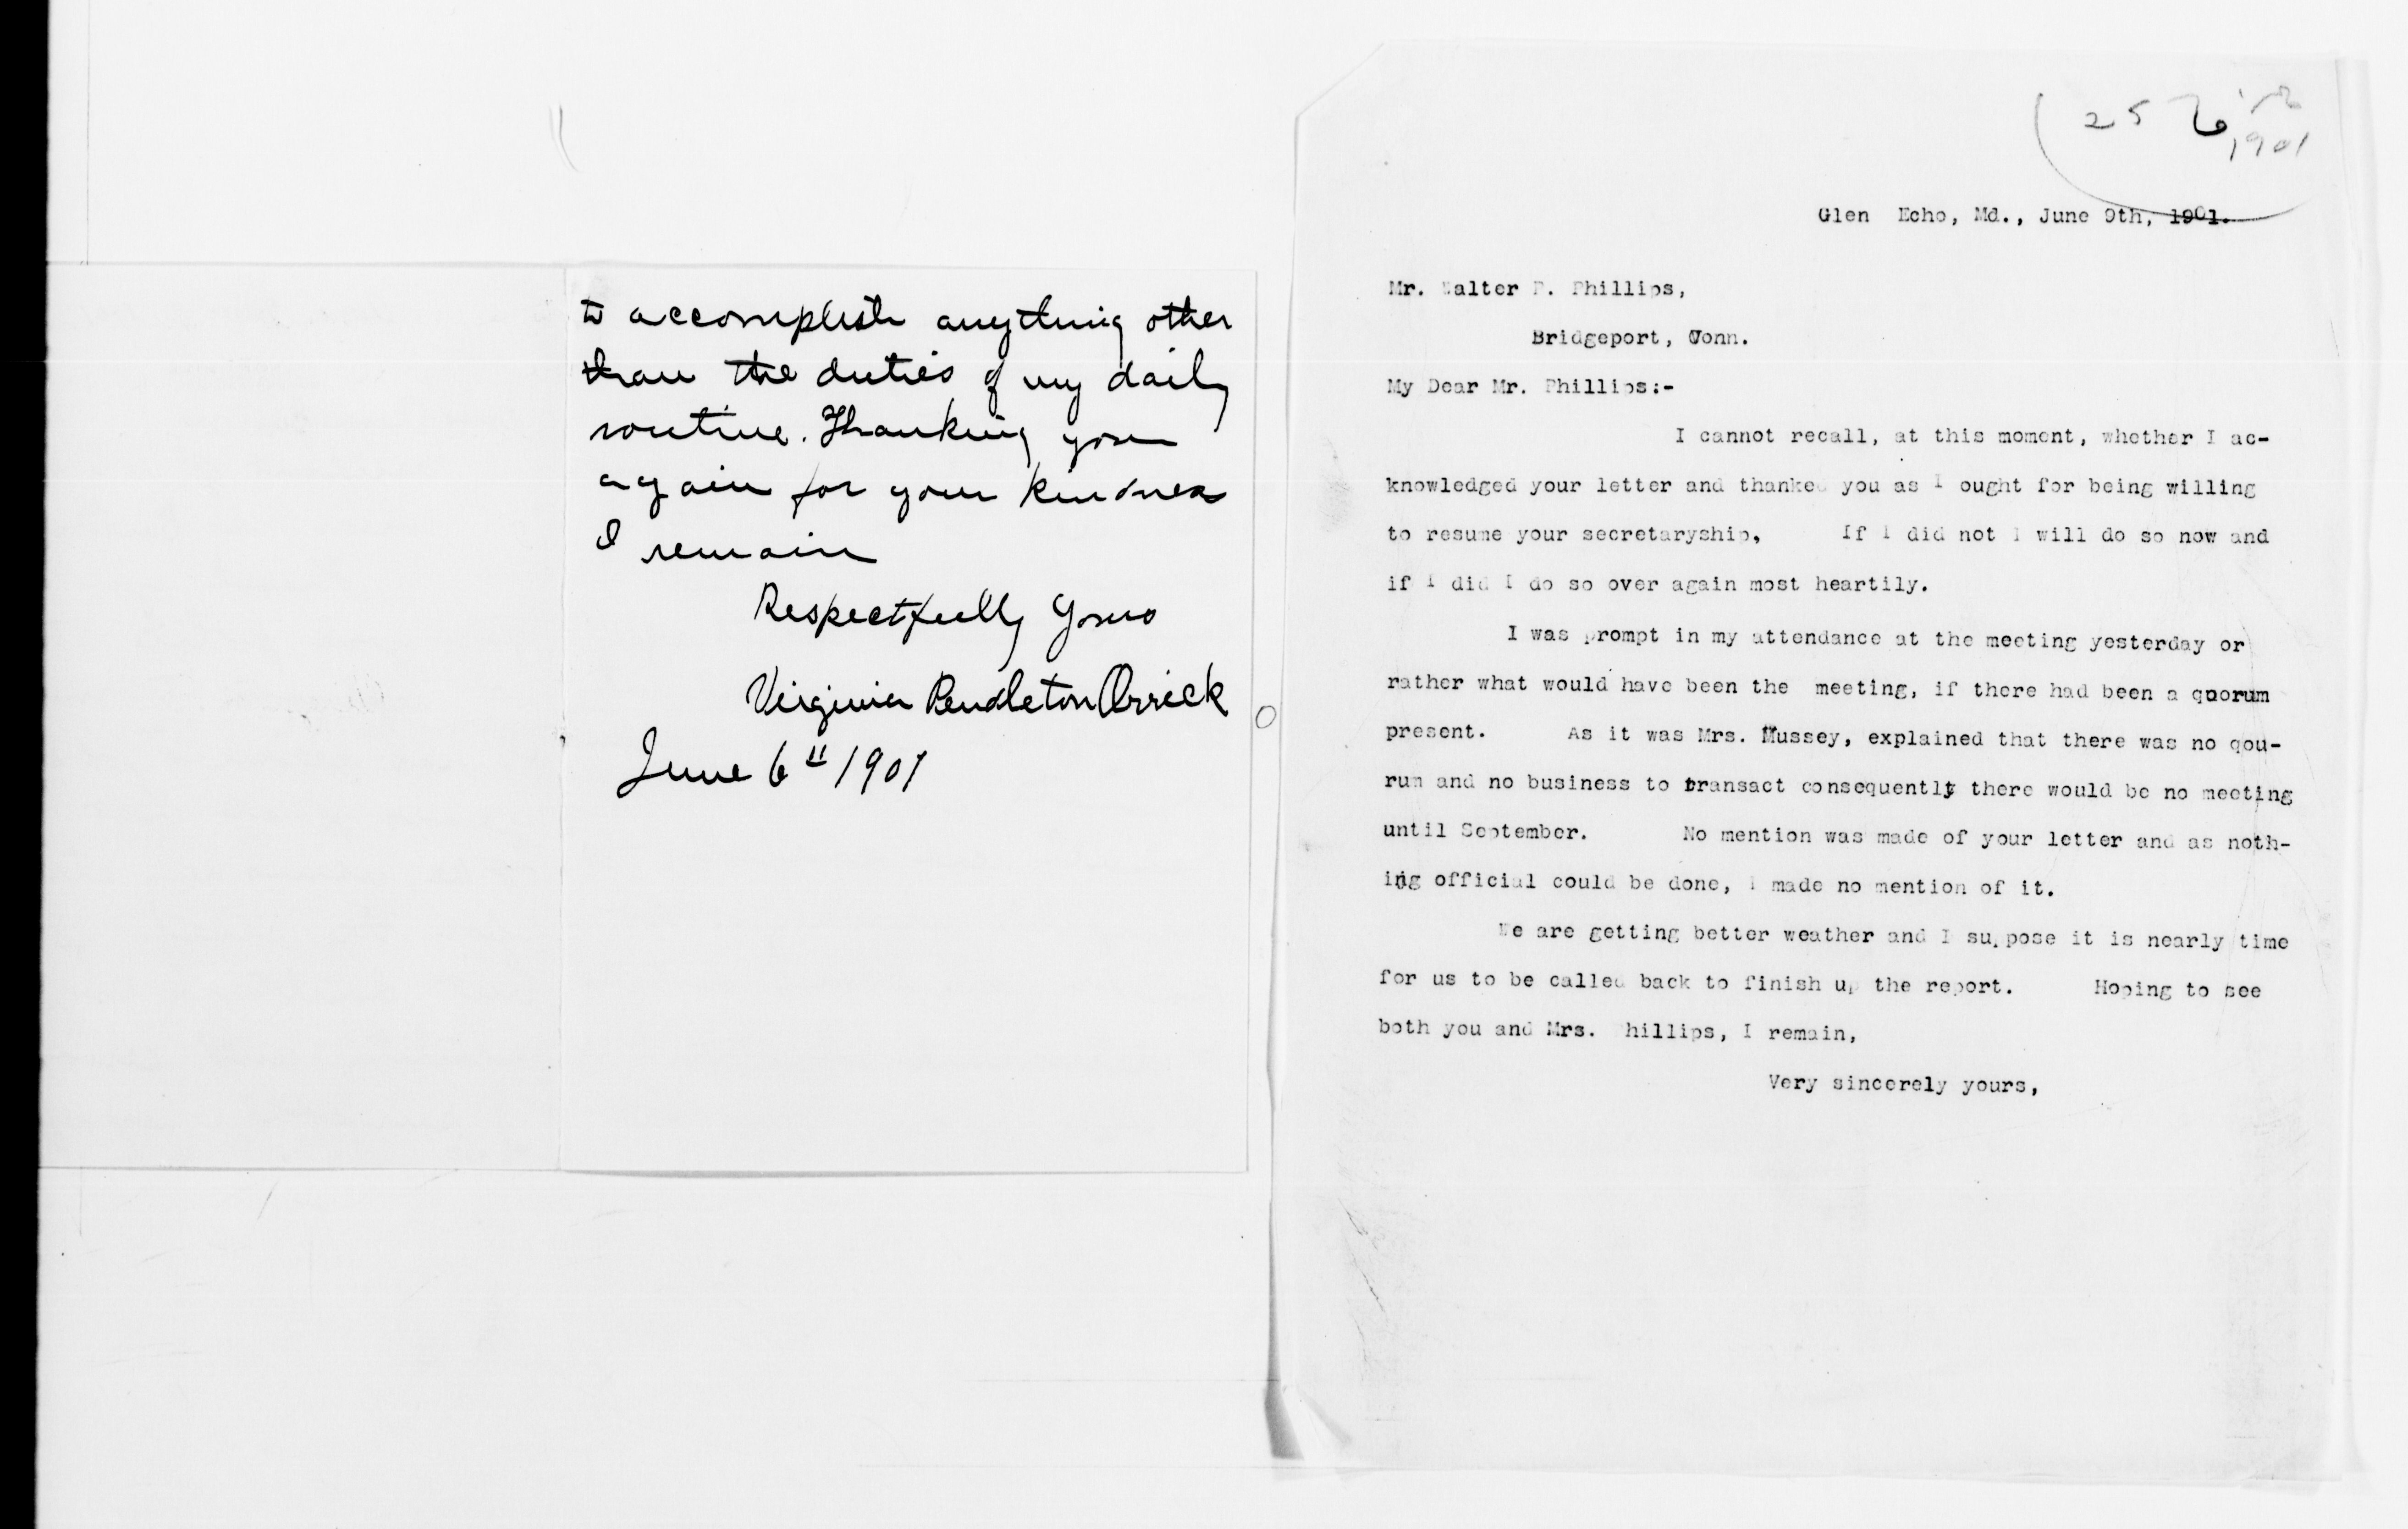 to accomplish anything other
than the duties of my daily
routine. Thanking you
again for your kindness
I remain
Respectfully Yours
Virginia Pendleton Orrick
June 6" 1901
25
1901
Glen Echo, Md., June 9th, 1901.
Mr. Walter P. Phillips,
Bridgeport, Conn.
My Dear Mr. Phillips:-
I cannot recall, at this moment, whether I ac-
knowledged your letter and thanked you as I ought for being willing
to resume your secretaryship, If I did not I will do so now and
if I did I do so over again most heartily.
I was prompt in my attendance at the meeting yesterday or
rather what would have been the meeting, if there had been a quorum
present. As it was Mrs. Mussey, explained that there was no qou-
rum and no business to transact consequently there would be no meeting
until September. No mention was made of your letter and as noth-
ing official could be done, I made no mention of it.
We are getting better weather and I suppose it is nearly time
for us to be called back to finish up the report. Hoping to see
both you and Mrs. Phillips, I remain,
Very sincerely yours,